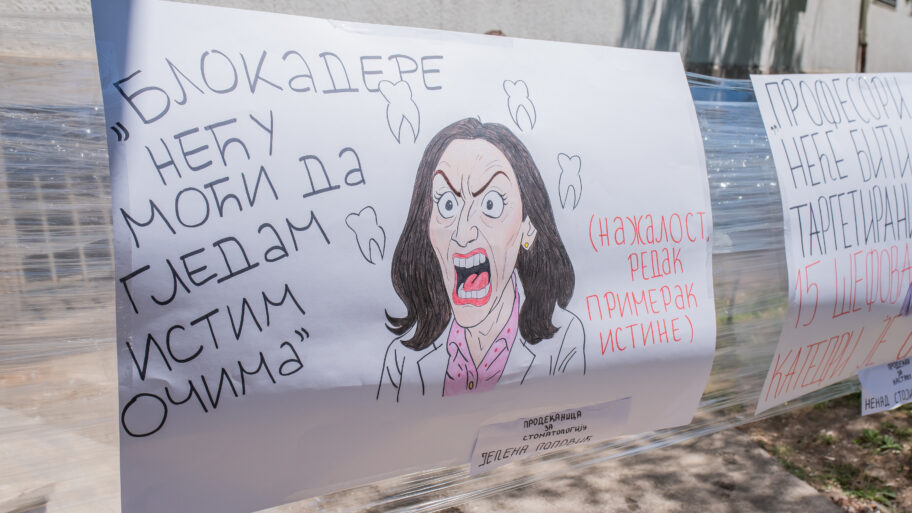 „БЛОКАДЕРЕ
НЕЋУ
МОЋИ ДА
ГЛЕДАМ
ИСТИМ
ОЧИМА”
(НАЖАЛОСТ,
РЕДАК
ПРИМЕРАК
ИСТИНЕ)
ПРОДЕКАНИЦА
ЗА
СТОМАТОЛОГИЈУ
ЈЕЛЕНА ПОПОВИЋ
„ПРОФЕСОРИ
НЕЋЕ БИТИ
ТАРГЕТИРАНИ
15 ШЕФОВА
КАТЕДРИ ЈЕ
ЗА
НЕНАД